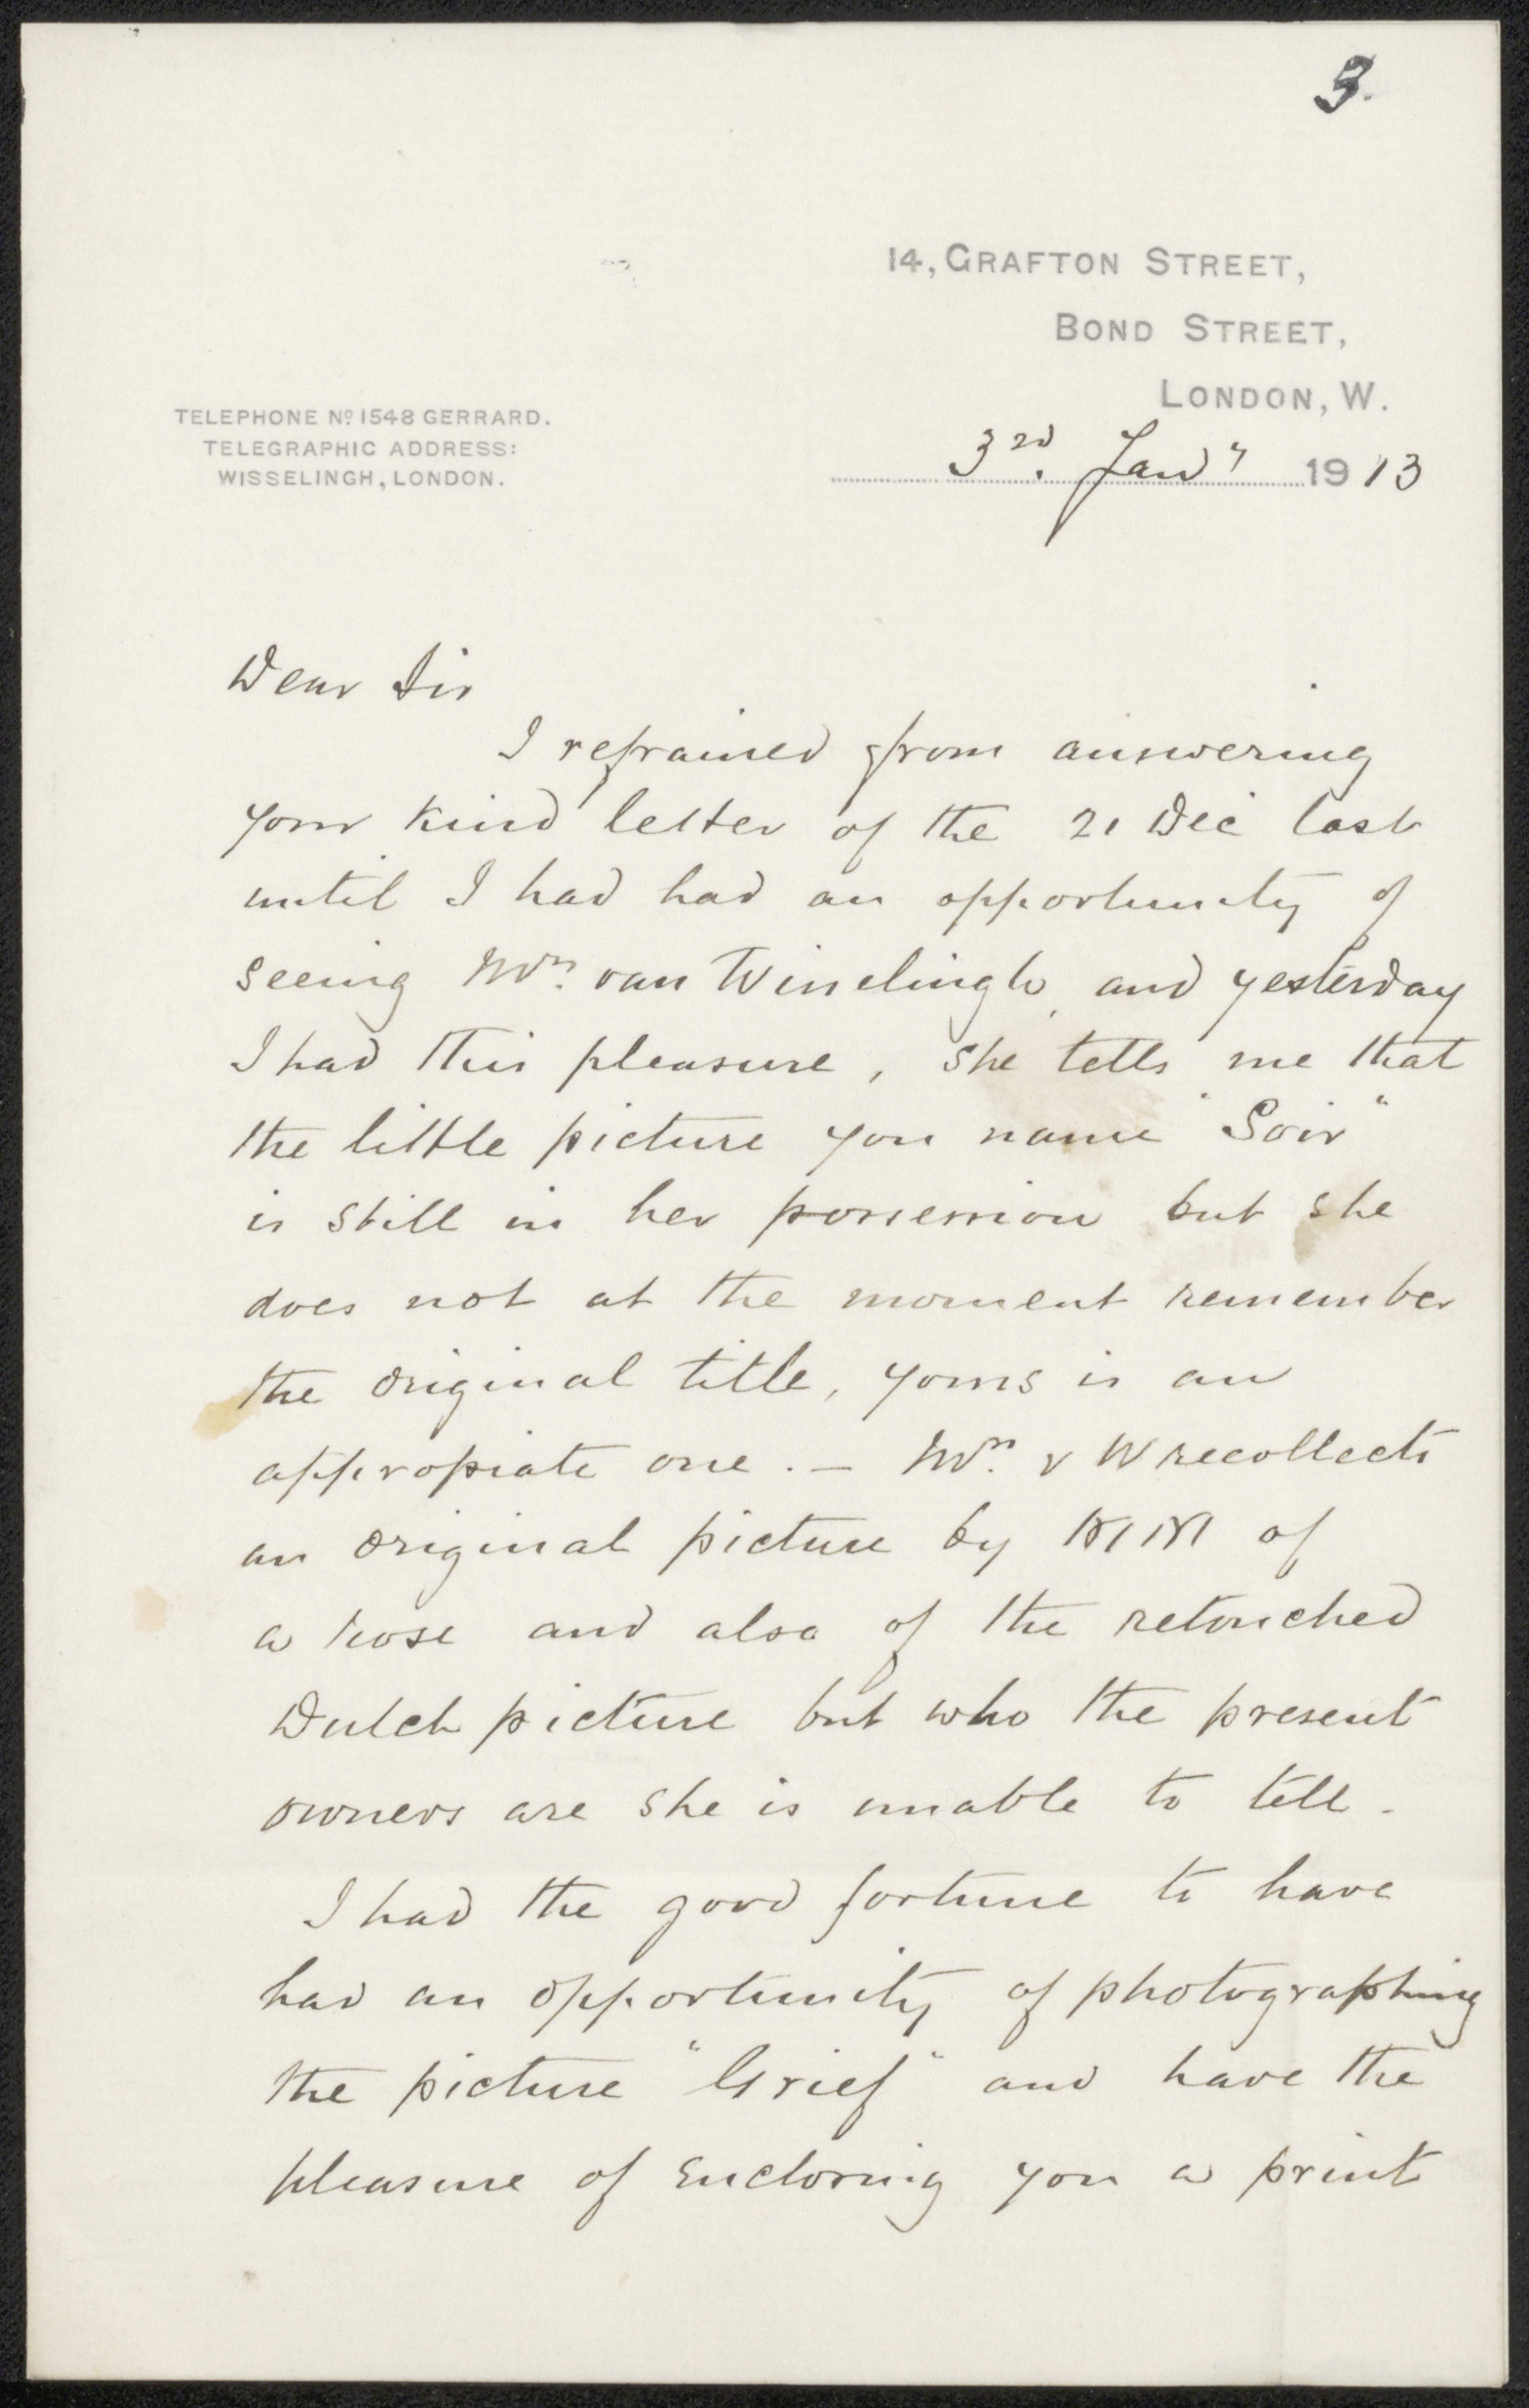 3.
14, GRAFTON STREET,
BOND STREET,
LONDON, W.
TELEPHONE No 1548 GERRARD.
TELEGRAPHIC ADDRESS:
WISSELINGH, LONDON.
3rd. Jany 1913
Dear Sir
I refrained from answering
your kind letter of the 21 Dec last
until I had had an opportunity of
seeing Mrs. van Wisselingh, and yesterday
I had this pleasure, she tells me that
the little picture you name "Soir"
is still in her possession but she
does not at the moment remember
the original title, yours is an
appropiate one. — Mrs. v W recollects
an original picture by MM of
a rose and also of the retouched
Dutch picture but who the present
owners are she is unable to tell.
I had the good fortune to have
had an opportunity of photographing
the picture "Grief" and have the
pleasure of enclosing you a print